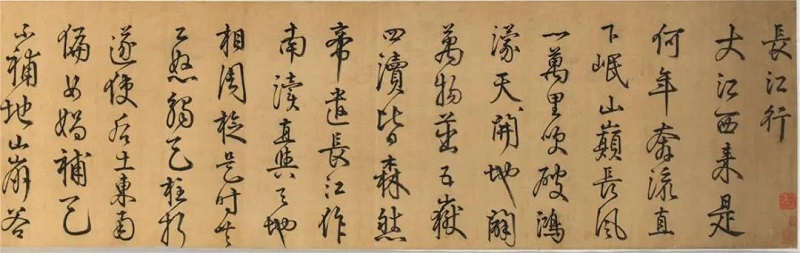 長江行
大江西来是
何年奔流直
下岷山巔長風
一萬里吹破鴻
濛天開地闢
萬物茁五嶽
四瀆皆森然
帝遣長江作
南瀆直與天地
相周旋是时共
工怒觸天柱折
遂使后土東南
偏女媧補天
不補地山崩谷